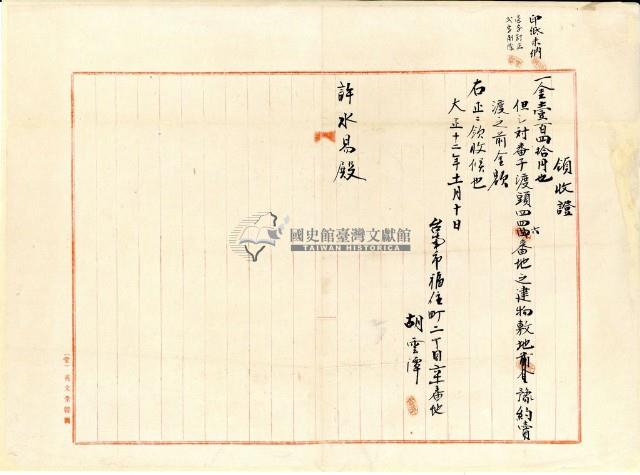 印紙未納
領收證
一金壹百四拾円也
但シ対番子渡頭四四番地之建物敷地前金豫約賣
渡之前金額
右正ニ領收候也
大正十二年十一月十日
台南市福住町二丁目番地
胡雲潭
許水易殿
國史館臺灣文獻館
TAIWAN HISTORICA